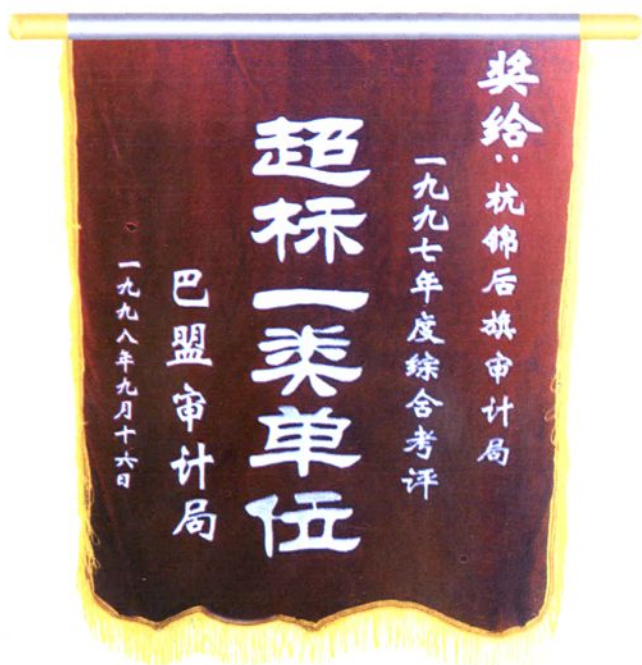 奖给:杭锦后旗审计局
一九九七年度综合考评
超标一类单位
巴盟审计局
一九九八年九月十六日